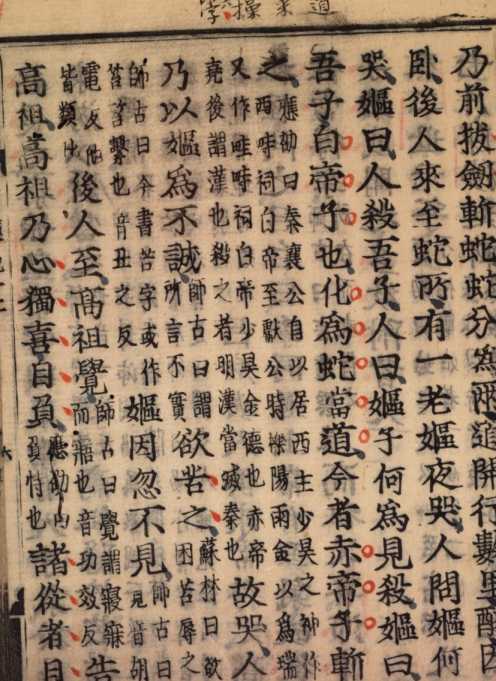 乃前拔劒斬蛇蛇分為兩道開行數里醉因
卧後人來至蛇所有一老嫗夜哭人問嫗何
哭嫗曰人殺吾子人曰嫗子何為見殺嫗曰
吾子白帝子也化為蛇當道今者赤帝子斬
之應劭曰秦襄公自以居西主少昊之神作
西畤祠白帝至獻公時櫟陽雨金以為瑞
又作畦畤祠白帝少昊金德也赤帝
堯後謂漢也殺之者明漢當滅秦也故哭人
乃以嫗為不誠師古曰謂
所言不實欲苦之蘇林曰欲
困苦辱之
師古曰今書苦字或作
笞笞擊也音丑之反嫗因忽不見師古曰
見音胡
電反他
皆類此後人至髙祖覺師古曰覺謂寢寐
而寤也音功效反告
髙祖髙祖乃心獨喜自負應劭曰
負恃也諸從者日